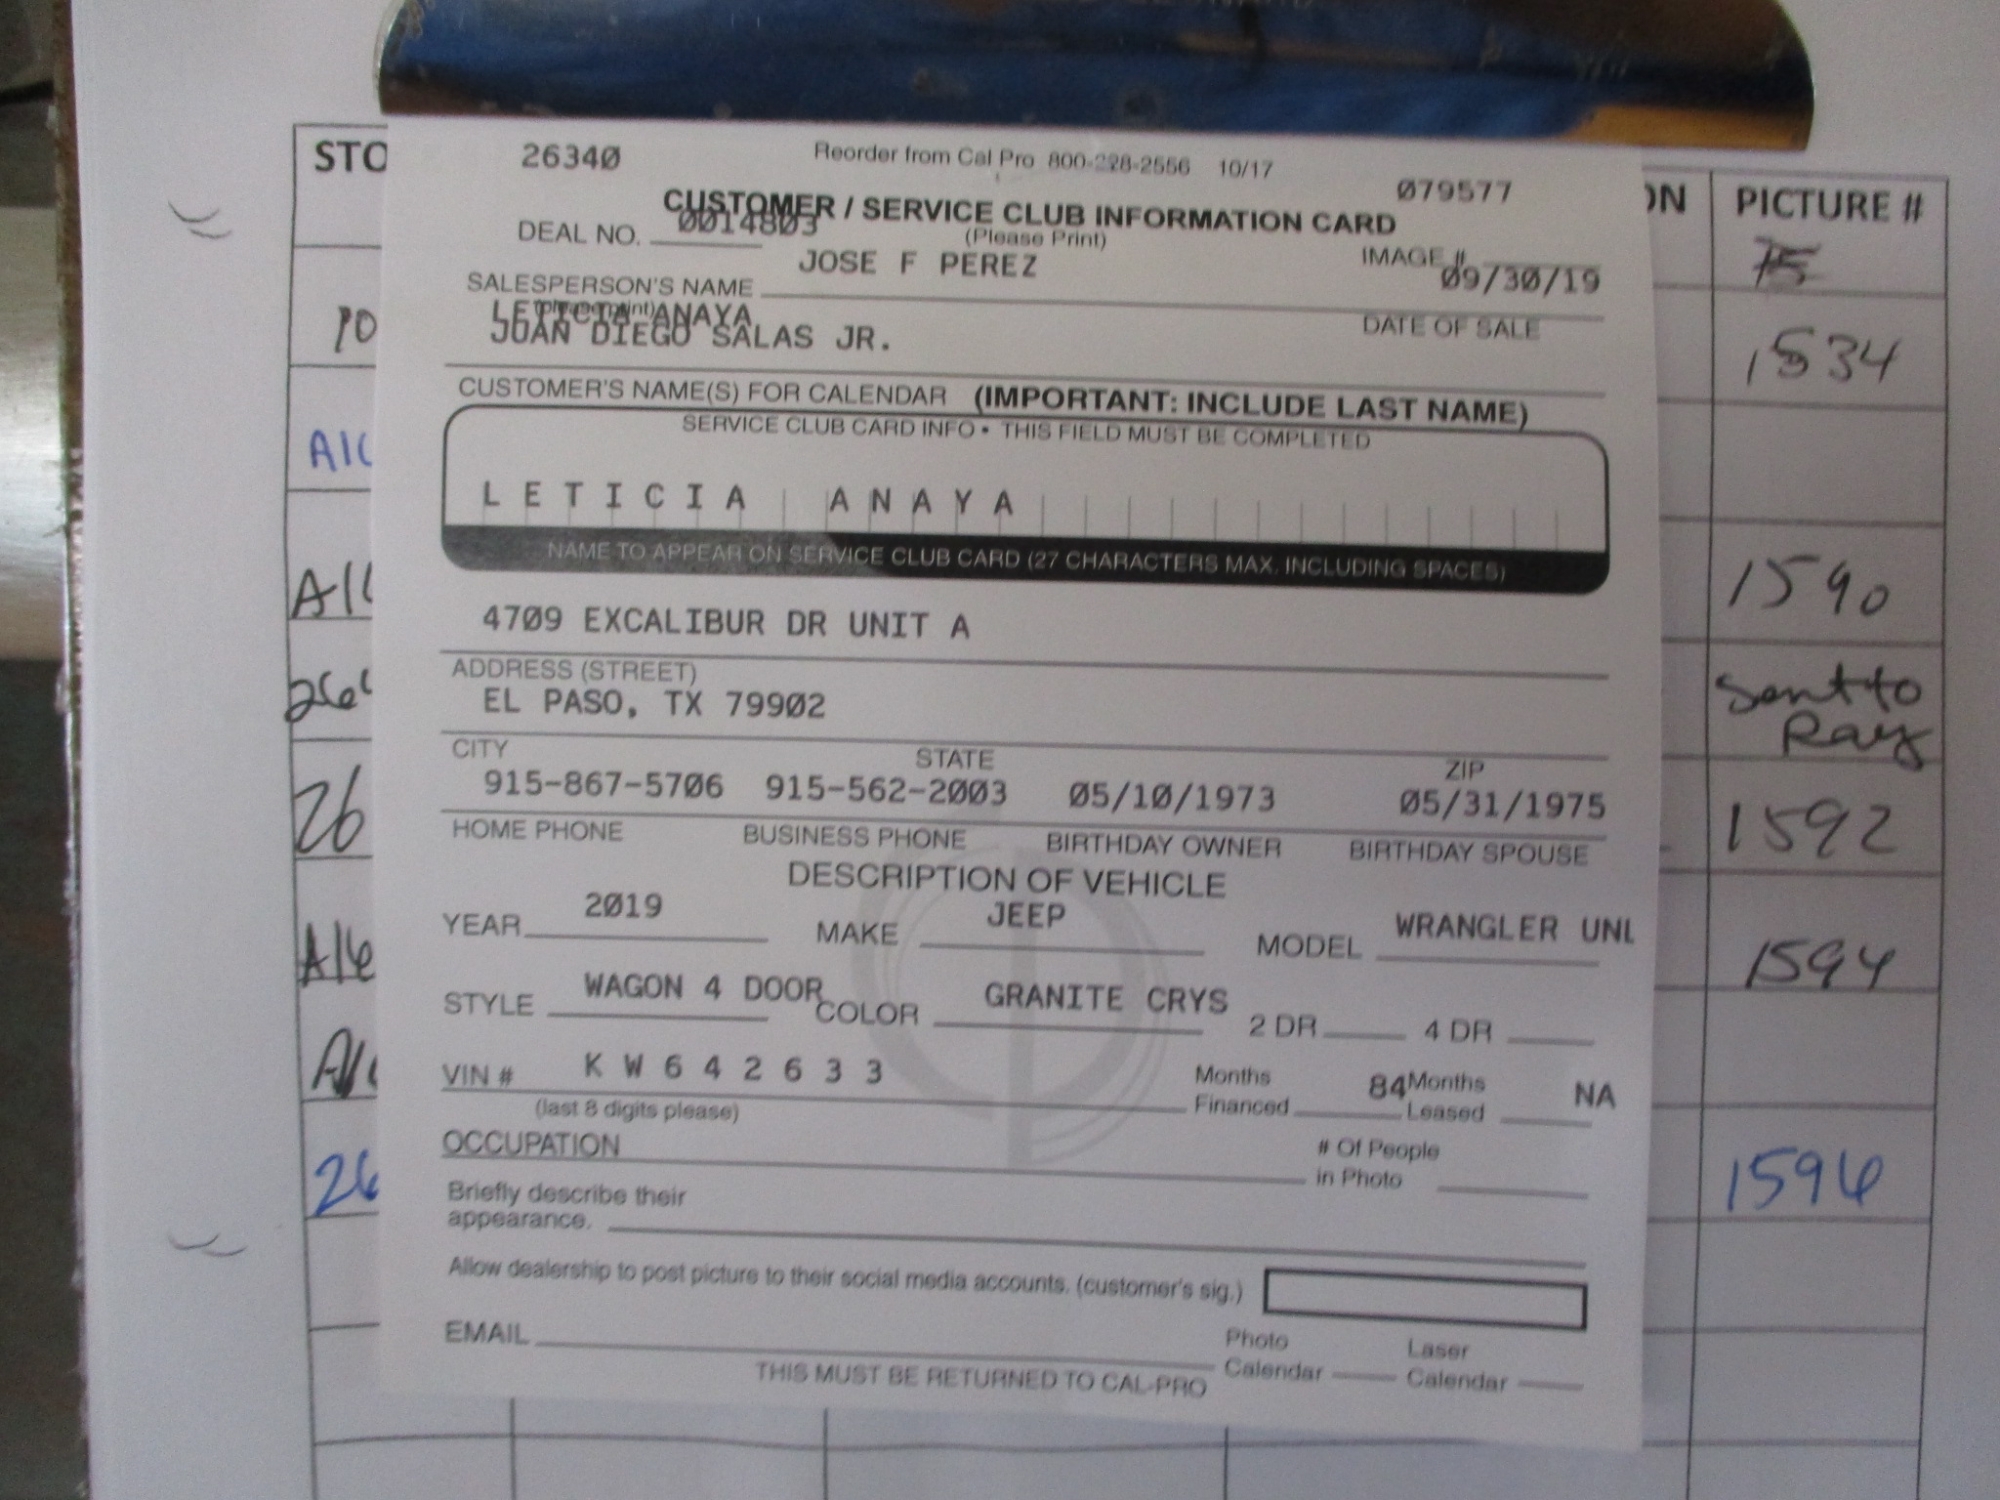 26340 Reorder from Cal Pro 800-228-2556 10/17
079577
CUSTOMER / SERVICE CLUB INFORMATION CARD
DEAL NO. 0014803 (Please Print)
JOSE F PEREZ IMAGE #
SALESPERSON'S NAME 09/30/19
(please print)
LETICIA ANAYA DATE OF SALE
JUAN DIEGO SALAS JR.
CUSTOMER'S NAME(S) FOR CALENDAR (IMPORTANT: INCLUDE LAST NAME)
SERVICE CLUB CARD INFO • THIS FIELD MUST BE COMPLETED
LETICIA ANAYA
NAME TO APPEAR ON SERVICE CLUB CARD (27 CHARACTERS MAX. INCLUDING SPACES)
4709 EXCALIBUR DR UNIT A
ADDRESS (STREET)
EL PASO, TX 79902
CITY STATE ZIP
915-867-5706 915-562-2003 05/10/1973 05/31/1975
HOME PHONE BUSINESS PHONE BIRTHDAY OWNER BIRTHDAY SPOUSE
DESCRIPTION OF VEHICLE
YEAR 2019 MAKE JEEP MODEL WRANGLER UNL
STYLE WAGON 4 DOOR COLOR GRANITE CRYS 2 DR 4 DR
VIN # K W 6 4 2 6 3 3 Months Financed 84 Months Leased NA
(last 8 digits please)
OCCUPATION # Of People in Photo
Briefly describe their
appearance.
Allow dealership to post picture to their social media accounts. (customer's sig.)
EMAIL Photo Calendar Laser Calendar
THIS MUST BE RETURNED TO CAL-PRO
STO
10
A16
A16
26
26
A16
26
ON PICTURE #
75
1534
1590
Sent to
Ray
1592
1594
1596